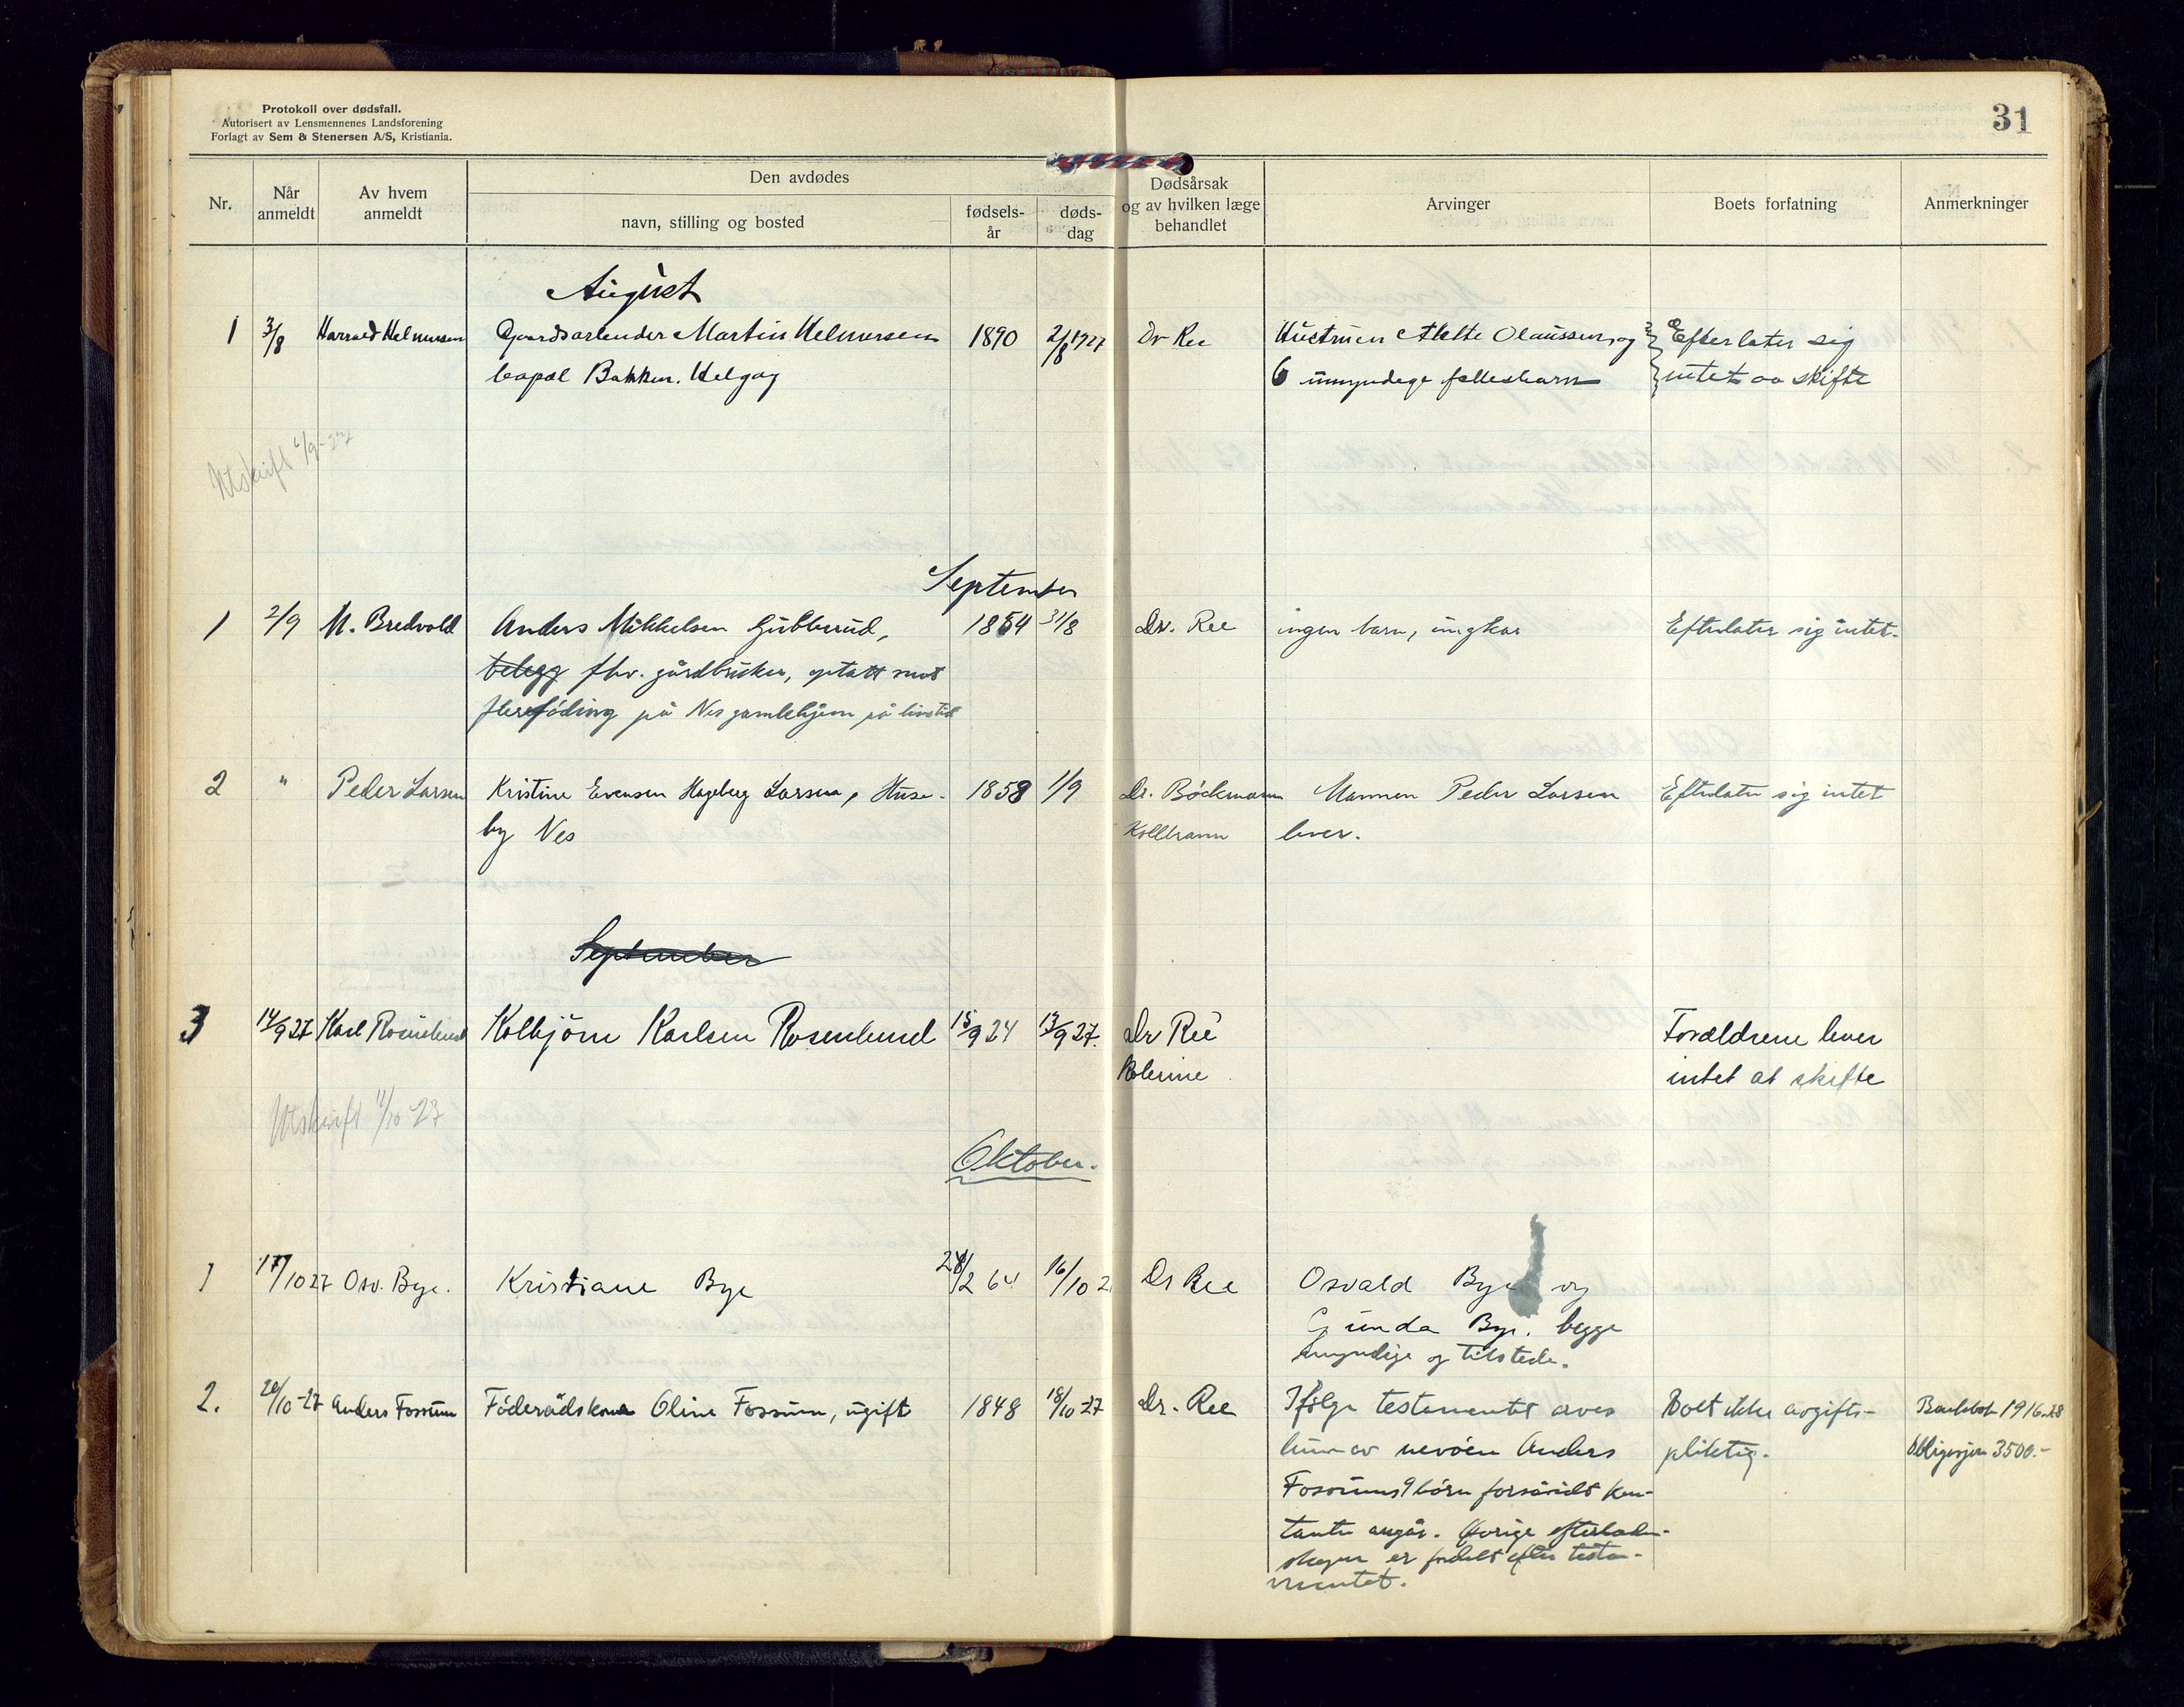 Protokoll over dødsfall.
Autorisert av Lensmennenes Landsforening
Forlagt av Sem & Stenersen A/S, Kristiania.
31
Nr.
Når anmeldt
Av hvem anmeldt
Den avdødes
navn, stilling og bosted
fødsels-år
døds-dag
Dødsårsak og av hvilken læge behandlet
Arvinger
Boets forfatning
Anmerkninger
August
1 3/8 Harrald Helmersen Gaardsarbeider Martin Helmersen 1890 2/8 1927 Dr Ree Hustruen Olaussen og Efterlater sig
Bakken. Helgøy 6 umyndege fellesbarn intet aa skifte
Utskrift 6/9-27
September
1 2/9 M. Bredvold Anders Mikkelsen Gubberud, 1854 31/8 Dr. Ree ingen barn, ungkar Efterlater sig intet.
belegg fhv. gårdbruker, optatt mot
på Nes gamlehjem på livstid
2 " Peder Larsen Kristine Evensen Hageberg Larsen, Huse- 1858 1/9 Dr. Böckmann Mannen Peder Larsen Efterlater sig intet
by Nes Koldbrann lever.
September
3 14/9 27 Karl Rosenlund Kolbjörn Karlsen Rosenlund 15/9 24 13/9 27. Dr Ree Forældrene lever
Kolerine intet at skifte
Utskrift 11/10-27
Oktober.
1 17/10 27 Osv. Bye. Kristiane Bye 28/2 64 16/10 2 Dr Ree Osvald Bye og
Gunda Bye. begge
myndige og tilstede.
2. 20/10-27 Anders Fossum Föderådskone Oline Fossum, ugift 1848 18/10 27 Dr. Ree Ifölge testamentet arves Boet ikke avgifts- Bankbok 1916.28
hun av nevöen Anders pliktig. Obligasjon 3500.-
Fossums 9 börn forsåvidt kon-
tanter angår. Övrige efterladen-
skaper er fordelt efter testa-
mentet.